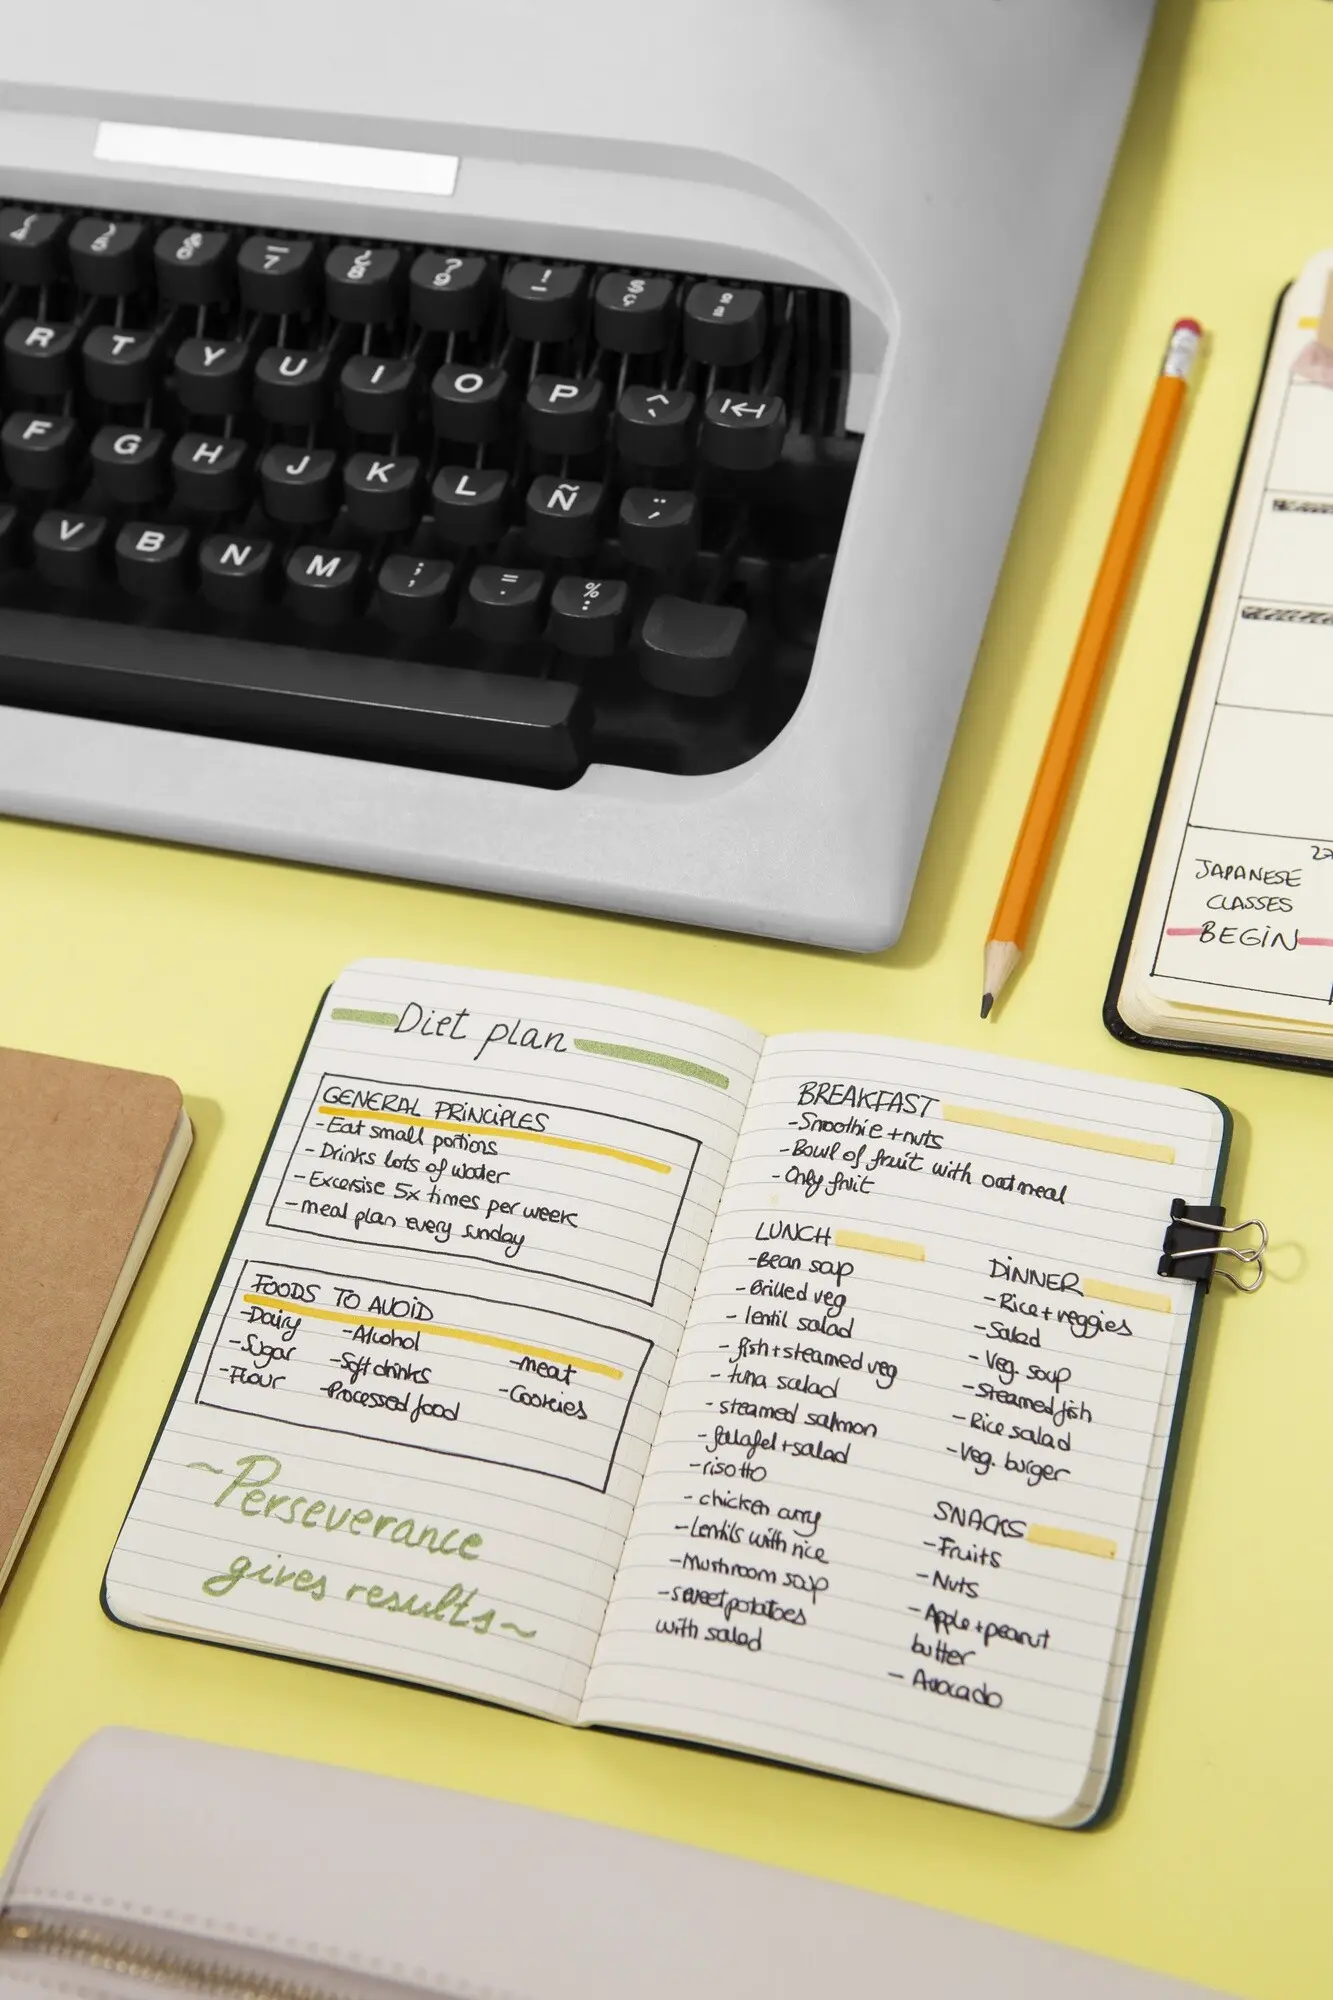 R T Y U I O P
F G H J K L Ñ
V B N M
JAPANESE
CLASSES
BEGIN
Diet plan
GENERAL PRINCIPLES
-Eat small portions
-Drinks lots of water
-Excersise 5x times per week
-meal plan every sunday
FOODS TO AVOID
-Dairy -Alcohol -meat
-Sugar -Soft drinks -Cookies
-Flour -Processed food
~Perseverance
gives results~
BREAKFAST
-Smoothie + nuts
-Bowl of fruit with oatmeal
-Only fruit
LUNCH
-Bean soup
-Grilled veg
- lentil salad
- fish + steamed veg
- tuna salad
- steamed salmon
- falafel + salad
- risotto
- chicken curry
- Lentils with rice
- Mushroom soup
- sweet potatoes
with salad
DINNER
- Rice + veggies
- Salad
- Veg. soup
- Steamed fish
- Rice salad
- Veg. burger
SNACKS
- Fruits
- Nuts
- Apple + peanut
butter
- Avocado